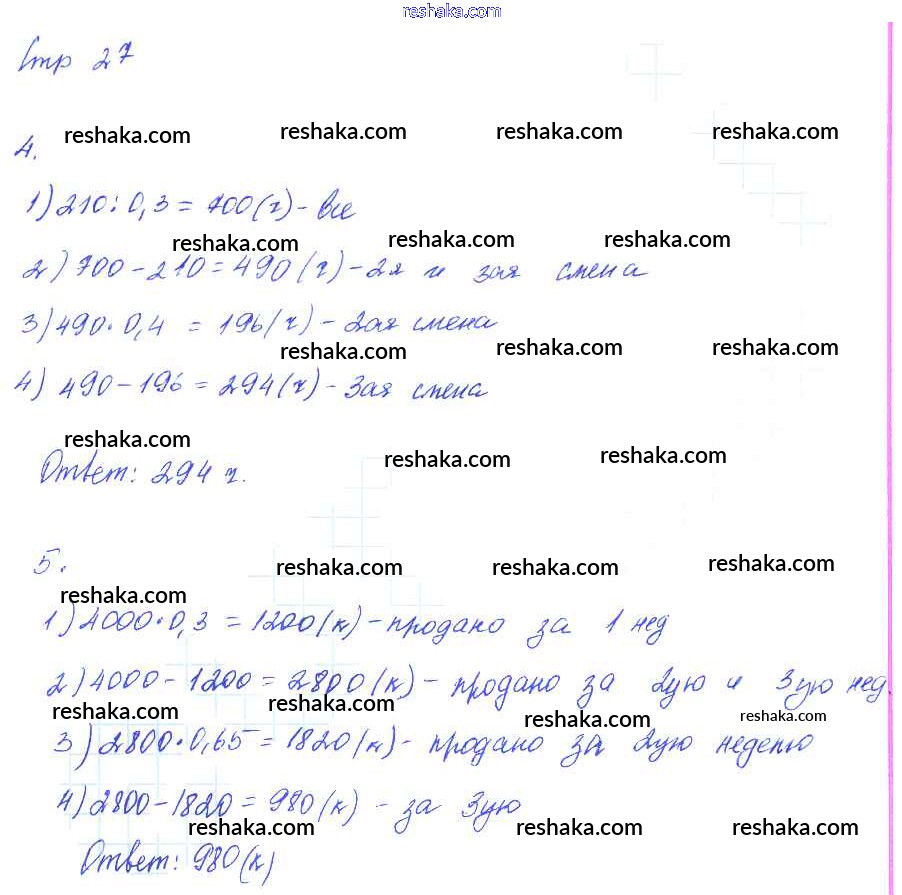 reshaka.com
Стр 27
reshaka.com reshaka.com reshaka.com reshaka.com
4.
1) 210 : 0,3 = 700 (г) - все
reshaka.com reshaka.com reshaka.com
2) 700 - 210 = 490 (г) - 2я и 3ая смена
3) 490 · 0,4 = 196 (г) - 2ая смена
reshaka.com reshaka.com reshaka.com
4) 490 - 196 = 294 (г) - 3ая смена
reshaka.com reshaka.com reshaka.com
Ответ: 294 г.
5.
reshaka.com reshaka.com reshaka.com reshaka.com
1) 4000 · 0,3 = 1200 (к) - продано за 1 нед
2) 4000 - 1200 = 2800 (к) - продано за 2ую и 3ую нед.
reshaka.com reshaka.com reshaka.com reshaka.com
3) 2800 · 0,65 = 1820 (к) - продано за 2ую неделю
4) 2800 - 1820 = 980 (к) - за 3ую
reshaka.com reshaka.com reshaka.com
Ответ: 980 (к)